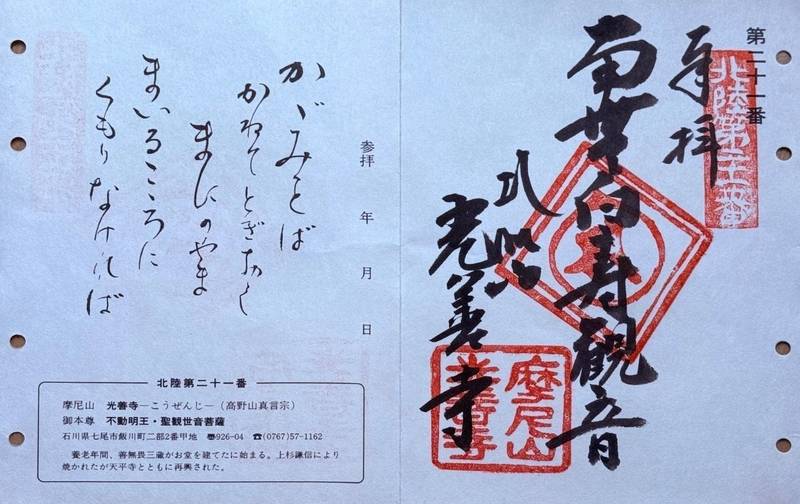 第二十一番
北陸第二十一番
奉拝
南無白寿観音
光善寺
摩尼山
光善寺
参拝　年　月　日
かゞみをば
かねてとぎおく
まにのやま
まいるこころに
くもりなければ
北陸第二十一番
摩尼山　光善寺―こうぜんじ―（高野山真言宗）
御本尊　不動明王・聖観世音菩薩
石川県七尾市飯川町二部2番甲地　〠926-04　☎(0767)57-1162
養老年間、善無畏三蔵がお堂を建てたに始まる。上杉謙信により
焼かれたが天平寺とともに再興された。